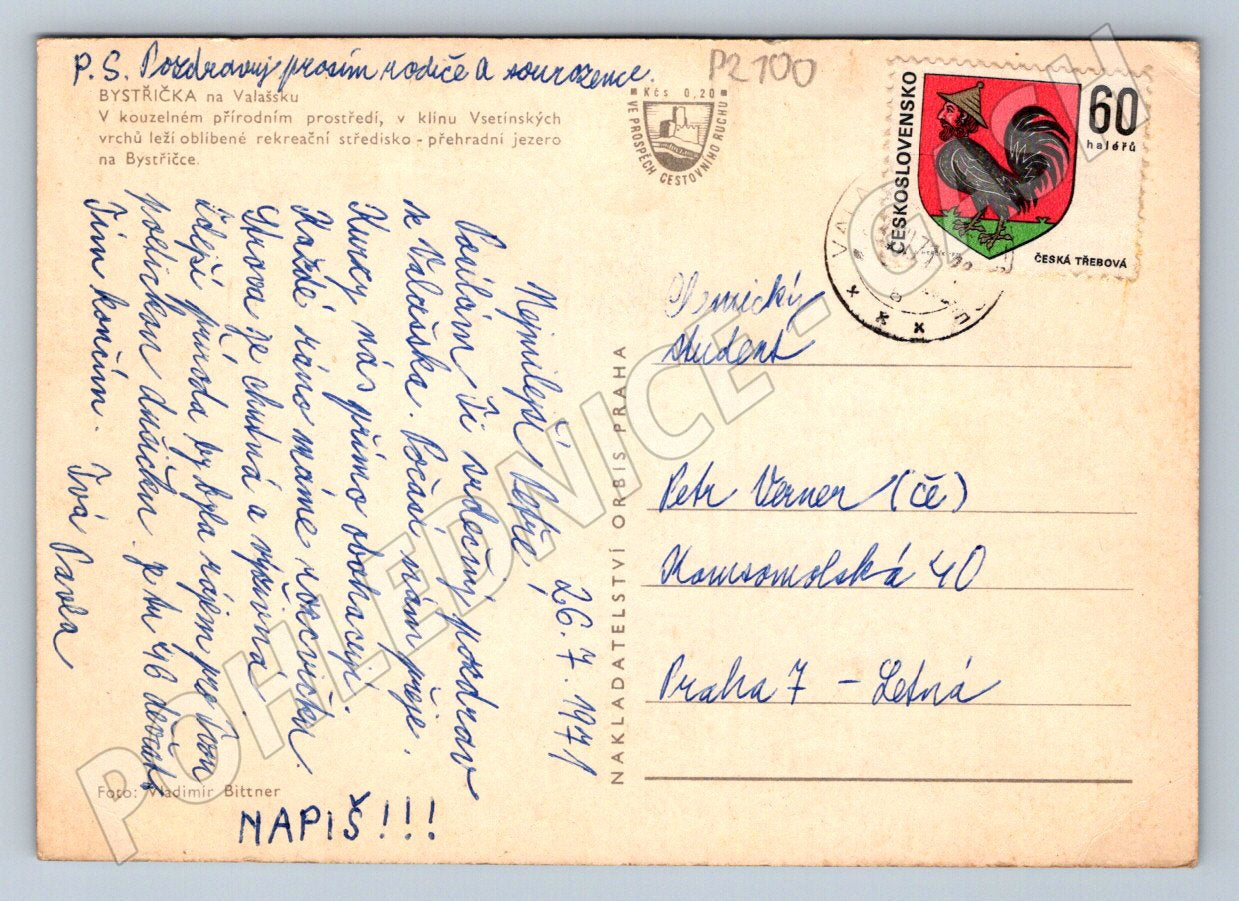 P.S. Pozdravuj prosím rodiče a sourozence.
P2 100
BYSTŘIČKA na Valašsku
V kouzelném přírodním prostředí, v klínu Vsetínských
vrchů leží oblíbené rekreační středisko - přehradní jezero
na Bystřičce.
Kčs 0,20
VE PROSPĚCH CESTOVNÍHO RUCHU
ČESKOSLOVENSKO
60
haléřů
ČESKÁ TŘEBOVÁ
26. 7. 1971
Nejmilejší Petře!
Posílám Ti srdečný pozdrav
z Valašska. Počasí nám přeje.
Kurky nás přímo obohacují.
Každé ráno máme rozcvičku.
Strava je chutná a výživná.
Zdejší příroda by byla rájem pro Tvou
poetickou dušičku. Je tu 46 děvčat.
Tím končím.
Tvá Pavla
NAPIŠ!!!
student
Petr Verner (če)
Komsomolská 40
Praha 7 - Letná
NAKLADATELSTVÍ ORBIS PRAHA
Foto: Vladimír Bittner
POHLEDNICE - CASH